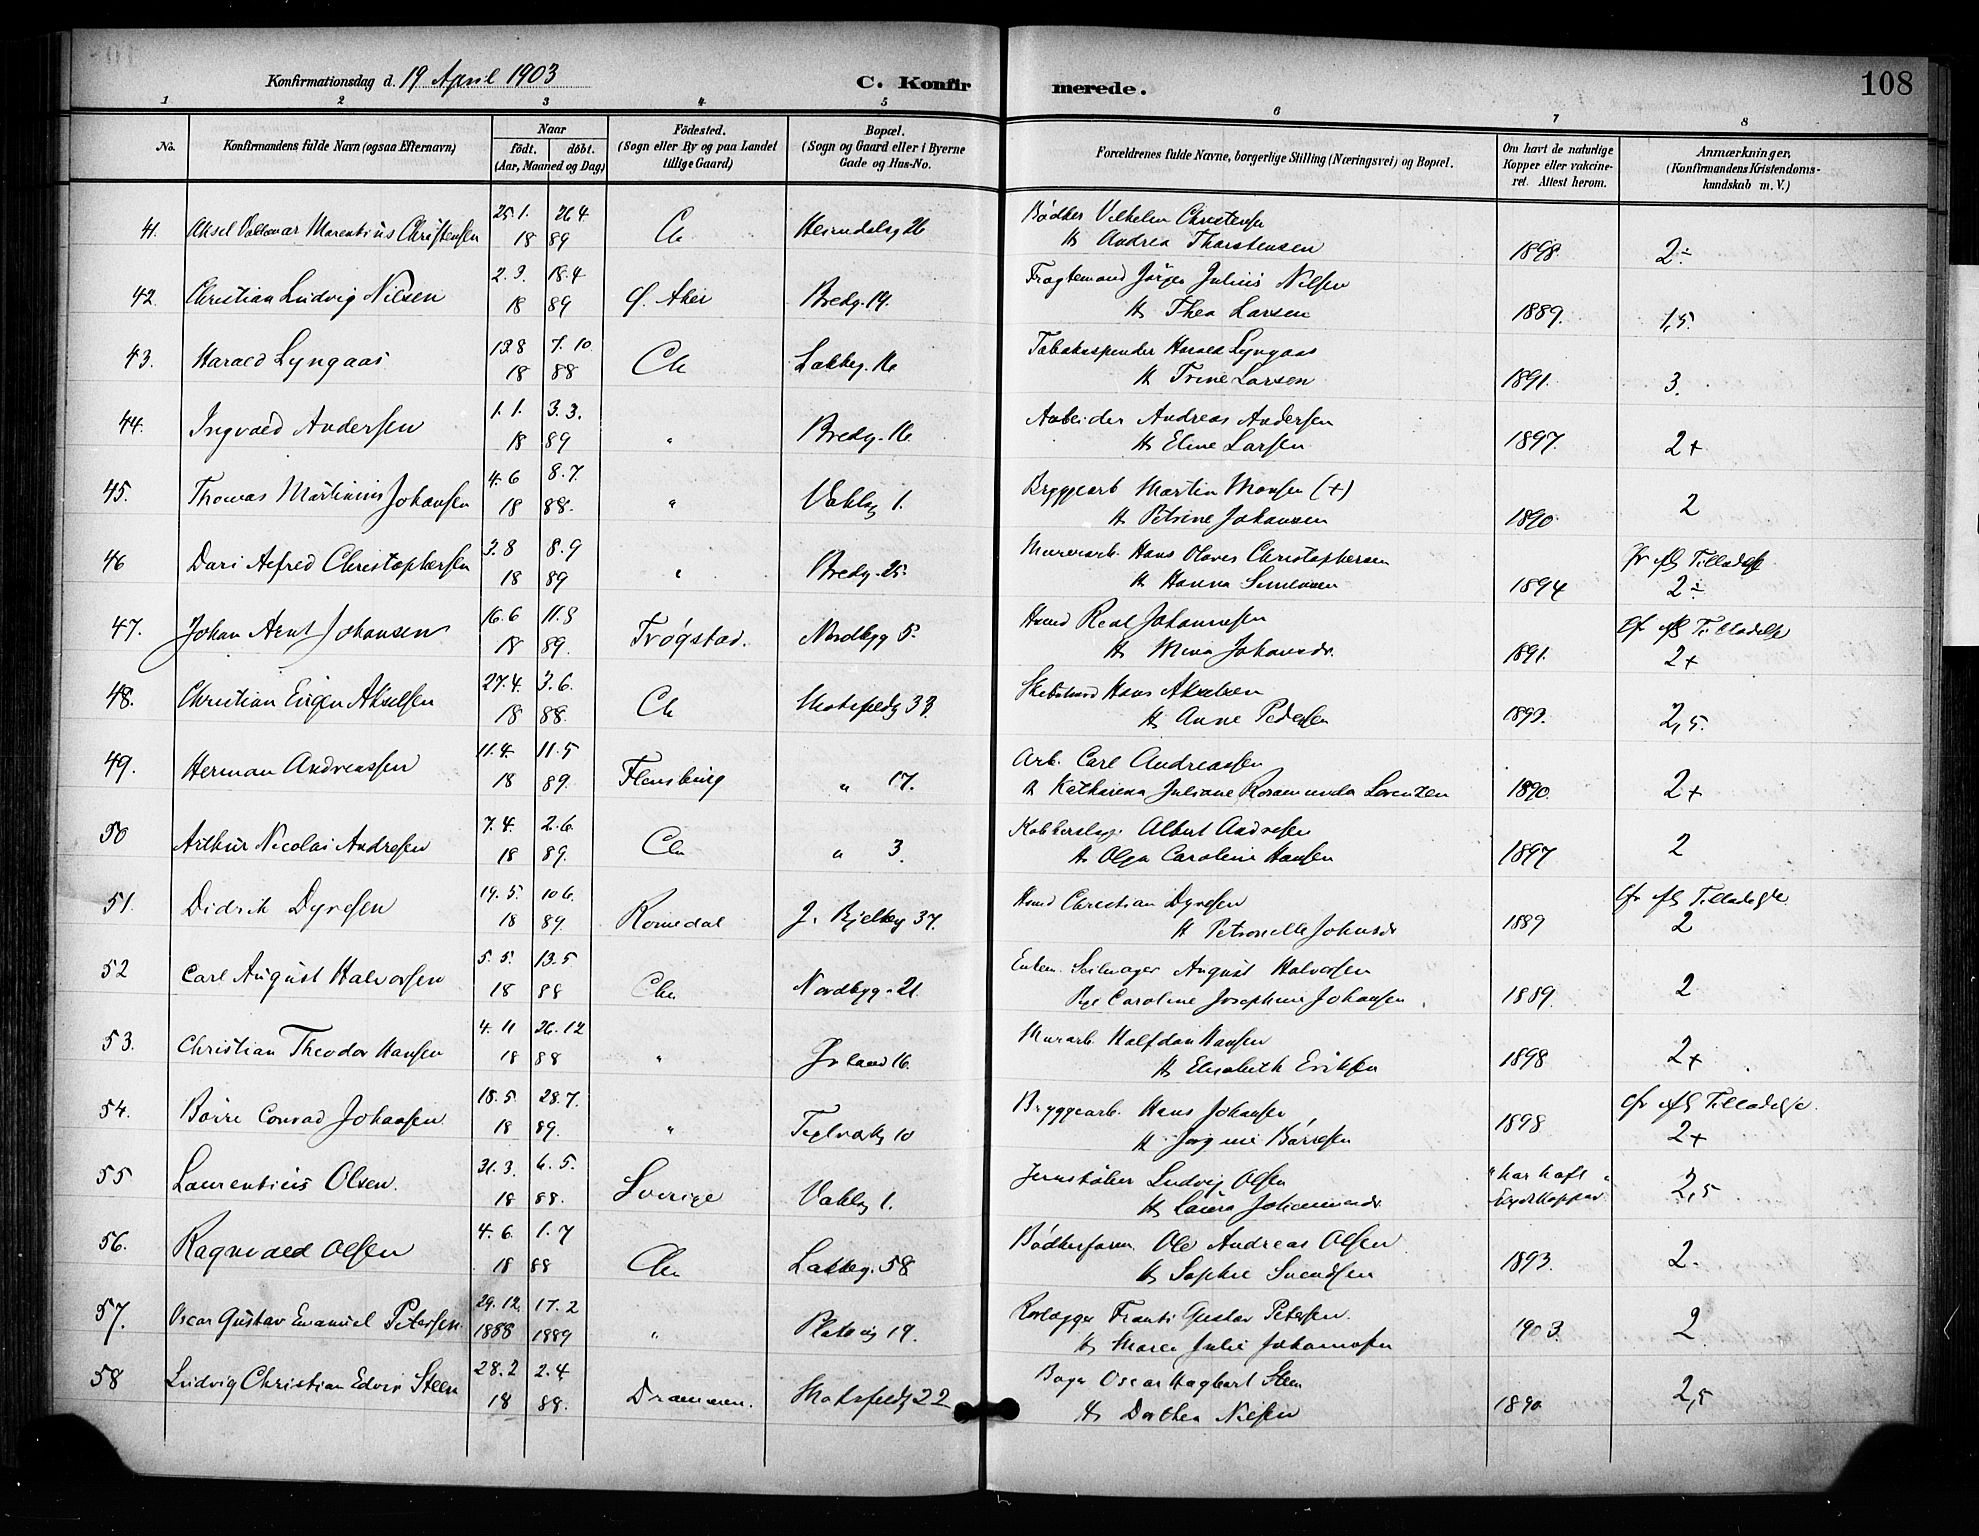 Konfirmationsdag d. 19 April 1903
C. Konfirmerede.
108
1 2 3 4 5 6 7 8
No.
Konfirmandens fulde Navn (ogsaa Efternavn)
Naar
födt. döbt.
(Aar, Maaned og Dag)
Födested.
(Sogn eller By og paa Landet
tillige Gaard)
Bopæl.
(Sogn og Gaard eller i Byerne
Gade og Hus-No.
Forældrenes fulde Navne, borgerlige Stilling (Næringsvei) og Bopæl.
Om havt de naturlige
Kopper eller vakcine-
ret. Attest herom.
Anmærkninger,
(Konfirmandens Kristendoms-
kundskab m. V.)
41. Aksel Valdemar Marentius Christensen 25.1. 26.4 18 89 Ch Heimdalsg 26
Bødker Vilhelm Christensen
H Andrea Thorstensen 1898. 2÷
42. Christian Ludvig Nilsen 2.3. 18.4 18 89 Ø. Aker Bredg. 19.
Fragtemand Jörgen Julius Nilsen
H Thea Larsen 1889. 1,5.
43. Harald Lyngaas 13.8 7.10. 18 88 Ch Lakkeg. 16
Tobakspinder Harald Lyngaas
H Trine Larsen 1891. 3.
44. Ingvald Andersen 1.1. 3.3. 18 89 " Bredg. 16
Arbeider Andreas Andersen
H Eline Larsen 1897. 2+
45. Thomas Martinius Johansen 4.6 8.7. 18 88. " Vahlsg 1.
Bryggearb Martin Monsen (+)
H Petrine Johansen 1890. 2
46 Alfred Christophersen 3.8 8.9 18 89 " Bredg. 25.
Murerarb. Hans Olaves Christophersen
H Hanna 1894 Tilladelse 2÷
47. Johan Arnt Johansen 16.6 11.8 18 89. Trøgstad. Nordbyg 5.
Johannesen
H Mina Johansdr. 1891. Tilladelse 2+
48. Christian Eugen Akselsen 27.4. 3.6. 18 88. Ch Motzfeldtg 33.
Hans Akselsen
H Anne Pedersen 1893. 2,5.
49. Herman Andreassen 11.4. 11.5 18 89. Flensburg " 17.
Arb. Carl Andreassen
H Katharina Juliane Rosamunda Lorenzen 1890. 2+
50 Arthur Nicolai Andresen 7.4. 2.6. 18 89. Chr " 3.
Kobberslager Albert Andresen
H Olga Caroline Hansen 1897 2
51. Didrik Dyresen 19.5. 10.6. 18 89. Romedal J. Bjelkeg 37.
Christian Dyresen
H Petronelle Johnsdr 1889 Tilladelse. 2
52 Carl August Halvorsen 5.5. 13.5 18 88 Chr Nordbyg. 21.
Enkem. Seilmager August Halvorsen
Caroline Josephine Johansen 1889. 2
53. Christian Theodor Hansen 4.11 26.12 18 88 " Grønland 16.
Murarb. Halfdan Hansen
H Elisabeth Eriksen 1898 2+
54. Børre Conrad Johansen 18.5. 28.7. 18 89. " Teglverksg 10
Bryggearb. Hans Johansen
H Jørgine Børresen 1898 Tilladelse. 2+
55 Laurentius Olsen. 31.3. 6.5. 18 88. Sverige Vahlsg 1.
Jernstøber Ludvig Olsen
H Laura Johannesdr. "har haft Kopper 2,5
56. Ragnvald Olsen 4.6. 1.7 18 88 Chr Lakkeg. 58
Bødkerform. Ole Andreas Olsen
H Sophie Svendsen 1893. 2.
57. Oscar Gustav Emanuel Petersen. 29.12. 17.2 1888 1889 " Platousg 19.
Rørlægger Frants Gustav Petersen.
H Maren Julie Johannesen 1903. 2
58 Ludvig Christian Edvin Steen 28.2 2.4 18 88. Drammen. Motzfeldtg 22
Bager Oscar Hagbart Steen
H Dorthea Nielsen 1890 2,5